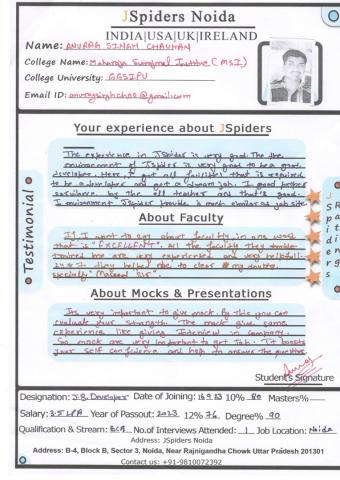 JSpiders Noida
INDIA|USA|UK|IRELAND
Name: ANURAG SINGH CHAUHAN
College Name: Maharaja Surajmal Institute (MSI)
College University: GGSIPU
Email ID: @gmail.com
Your experience about JSpiders
The experience in JSpider is very good. The the
environment of JSpider is very good to be a good
developer. Here, I got all facilities that is required
to be a developer and got a dream job. I good proper
by the all teacher and that's good.
Environment JSpider provide is much similar as job site.
Testimonial
JSpiders
Star Rating
About Faculty
If I want to say about faculty in one word
that is "EXCELLENT". All the faculty they
trained me are very experienced and very helpfull.
they helped me to clear my doubts.
specially "Masood Sir".
About Mocks & Presentations
Its very important to give mock. By this you can
evaluate your strength. The mock give some
experience like giving Interview in company.
So mock are very important to get Job. It boosts
your self confidence and help to answer the question.
Student's Signature
Designation: J.R. Developer Date of Joining: 16.9.23 10% 80 Masters% —
Salary: 3.5 LPA Year of Passout: 2023 12% 76 Degree% 90
Qualification & Stream: BCA No.of Interviews Attended: 1 Job Location: Noida
Address: JSpiders Noida
Address: B-4, Block B, Sector 3, Noida, Near Rajnigandha Chowk Uttar Pradesh 201301
Contact us: +91-9810072392